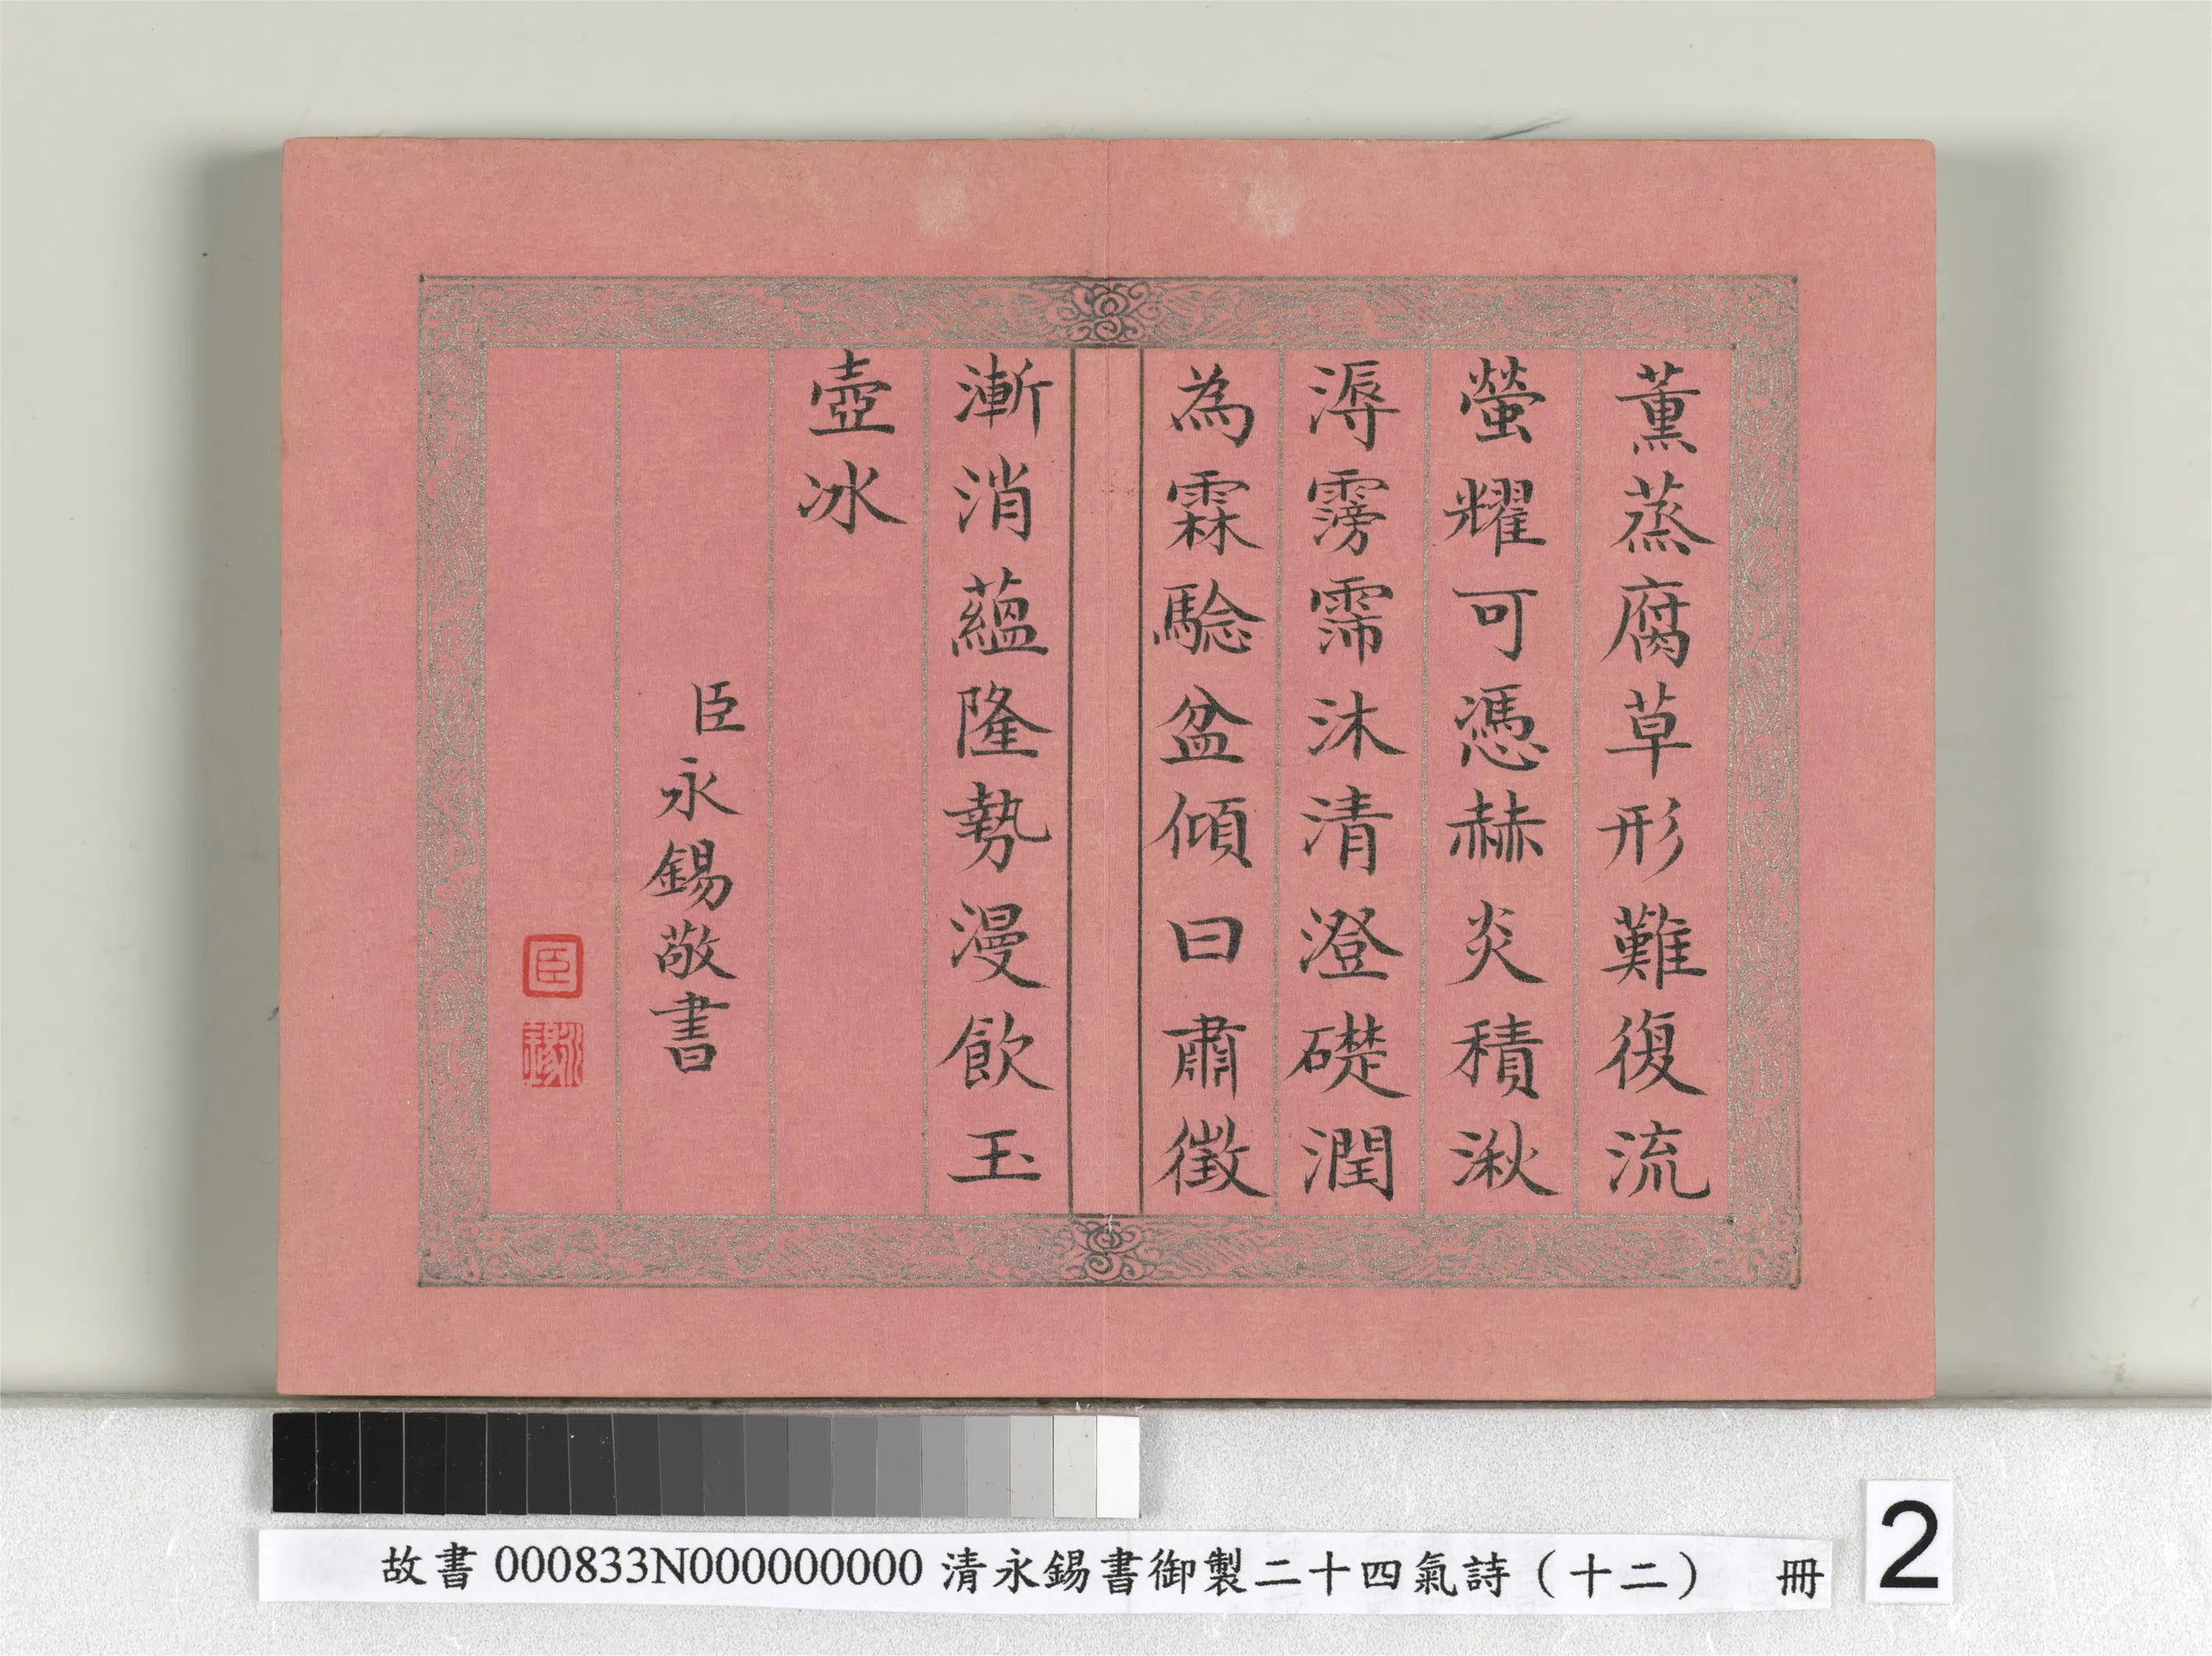 薰蒸腐草形難復流
螢耀可憑赫炎積湫
溽霶霈沐清澄礎潤
為霖騐盆傾曰肅徵
漸消蘊隆勢漫飲玉
壺冰
臣永錫敬書
臣
永錫
故書 000833N000000000 清永錫書御製二十四氣詩（十二） 冊
2